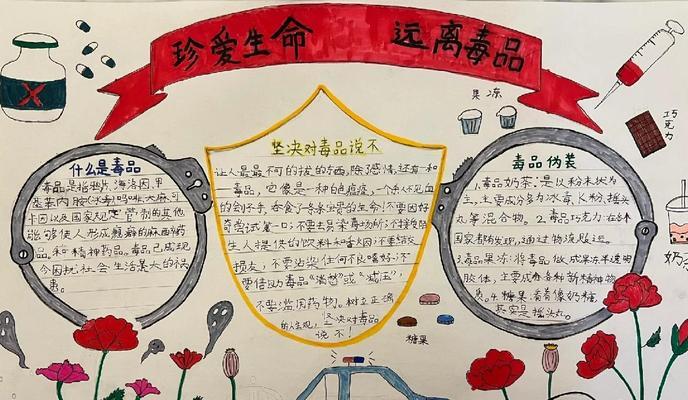 珍爱生命 远离毒品
什么是毒品
毒品是指鸦片、海洛因、甲
基苯丙胺(冰毒)吗啡、大麻、可
卡因以及国家规定管制的其他
能够使人形成瘾癖的麻醉药
品和精神药品。毒品已成现
今困扰社会生活最大的祸
害。
坚决对毒品说不
让人最最不可自拔的东西,除了感情,还有一种
—毒品,它像是一种白色瘟疫,一个杀人不见血
的刽子手,吞食了一条条宝贵的生命!不要因好
奇尝试第一口,不要去
人提供的饮料和香烟,不要结交
损友,不要沾染任何不良嗜好,不
要借助毒品"减愁"或"减压",
不要滥用药物。树立正确
的人生观,坚决对毒品
说不!
毒品伪装
1.毒品奶茶:是以粉末状为
主,主要成分为冰毒、K粉、摇头
丸等混合物。2.毒品巧克力:在多个
国家都有发现,通过物流贩运。
3.毒品果冻:将毒品做成果冻半透明
胶体,主要成分各种新精神物
质。4.糖果:看着像奶糖,
其实是摇头丸。
果冻
巧克力
奶茶
糖果